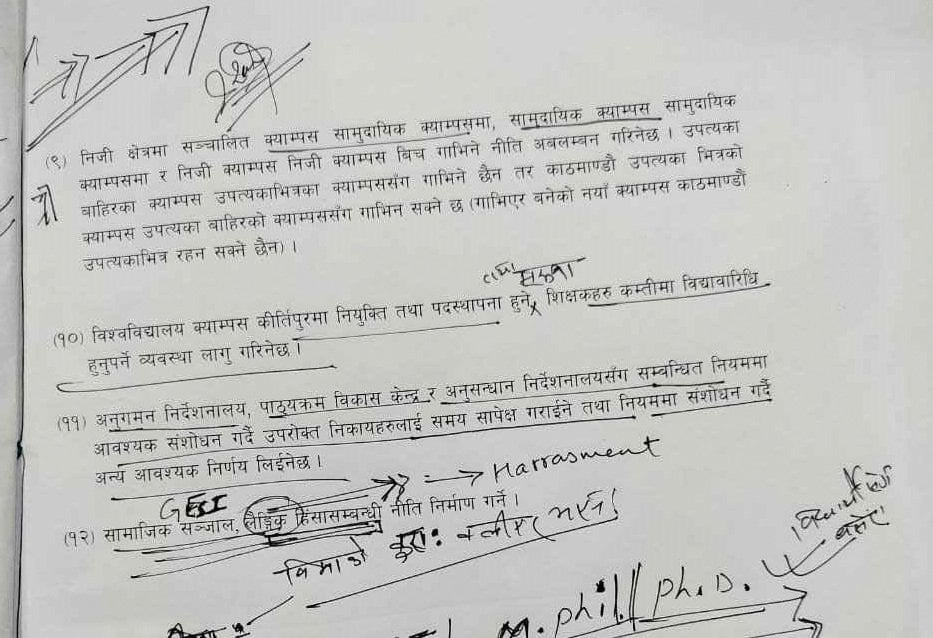 (९) निजी क्षेत्रमा सञ्चालित क्याम्पस सामुदायिक क्याम्पसमा, सामुदायिक क्याम्पस सामुदायिक
क्याम्पसमा र निजी क्याम्पस निजी क्याम्पस बिच गाभिने नीति अबलम्बन गरिनेछ । उपत्यका
बाहिरका क्याम्पस उपत्यकाभित्रका क्याम्पससँग गाभिने छैन तर काठमाण्डौ उपत्यका भित्रको
क्याम्पस उपत्यका बाहिरको क्याम्पससँग गाभिन सक्ने छ (गाभिएर बनेको नयाँ क्याम्पस काठमाण्डौ
उपत्यकाभित्र रहन सक्ने छैन) ।
(१०) विश्वविद्यालय क्याम्पस कीर्तिपुरमा नियुक्ति तथा पदस्थापना हुने शिक्षकहरु कम्तीमा विद्यावारिधि
हुनुपर्ने व्यवस्था लागु गरिनेछ ।
(११) अनुगमन निर्देशनालय, पाठ्यक्रम विकास केन्द्र र अनुसन्धान निर्देशनालयसँग सम्बन्धित नियममा
आवश्यक संशोधन गर्दै उपरोक्त निकायहरुलाई समय सापेक्ष गराईने तथा नियममा संशोधन गर्दै
अन्य आवश्यक निर्णय लिईनेछ ।
→ Harrasment
GESI
(१२) सामाजिक सञ्जाल, लैङ्गिक हिंसासम्बन्धी नीति निर्माण गर्ने ।
M.phil./ph.D.